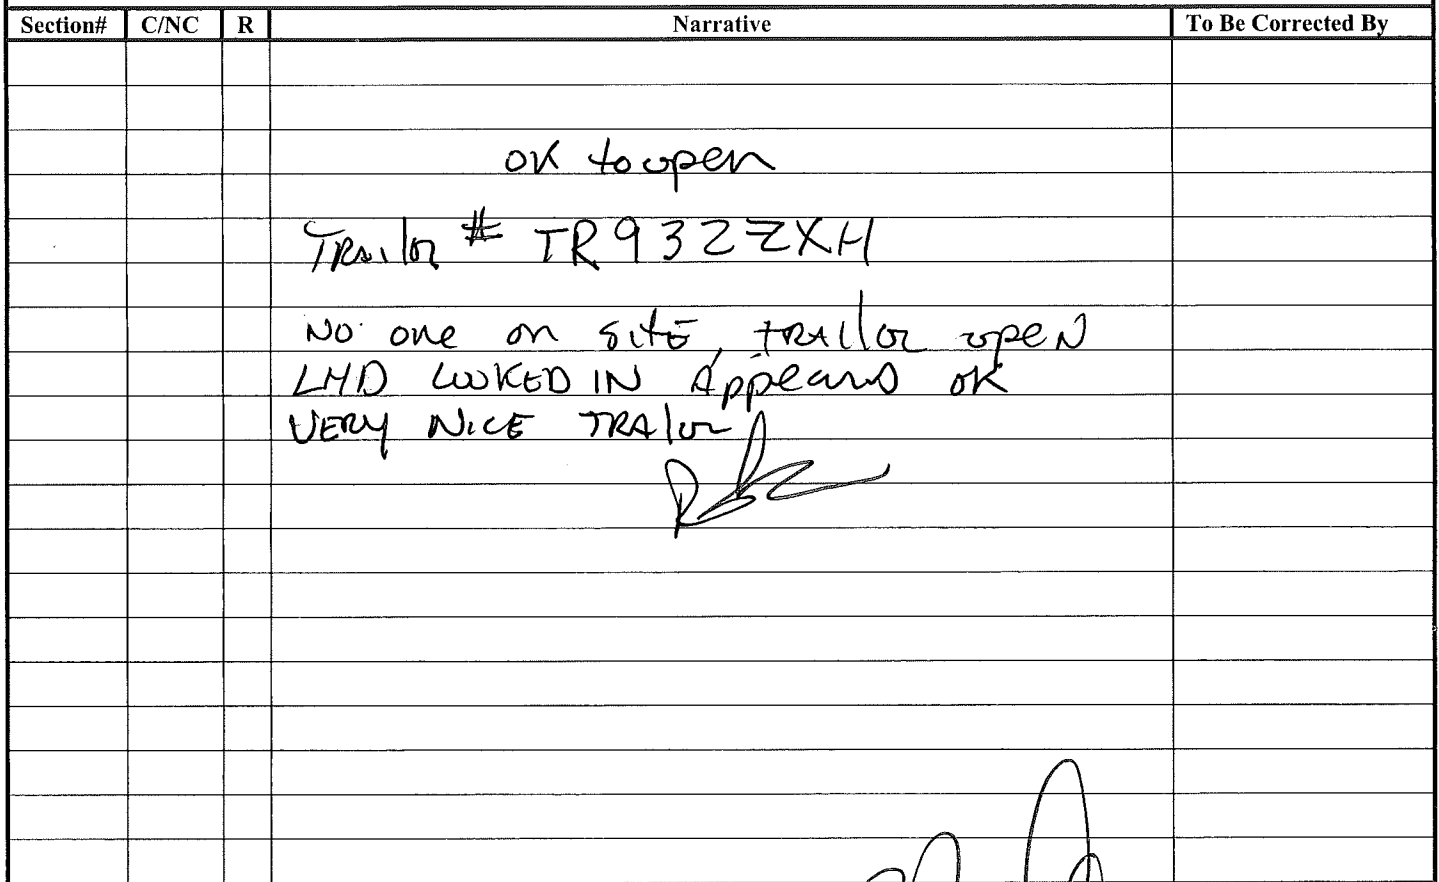 Section# C/NC R Narrative To Be Corrected By
OK to open
Trailor # TR932ZXH
No one on site, trailor open
LHD LOOKED IN Appears OK
VERY NICE TRAlor